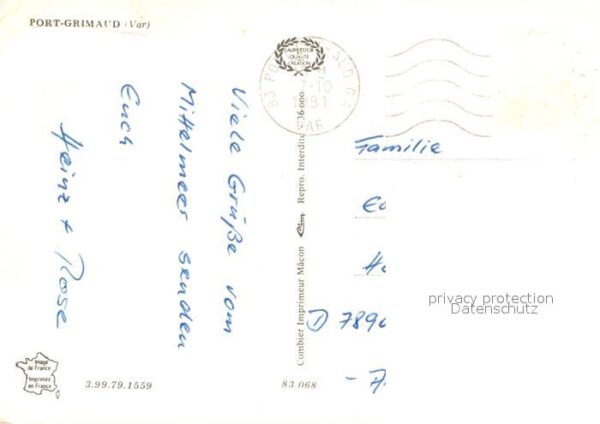 PORT-GRIMAUD (Var)
Viele Grüße vom
Mittelmeer senden
Euch
Heinz + Rose
LAURÉAT DE LA
QUALITÉ
1981
VAR
Combier Imprimeur Mâcon Cim Repro. Interdite 36000
Familie
D 789
privacy protection
Datenschutz
Image
de France
Imprimée
en France
3.99.79.1559
83.068